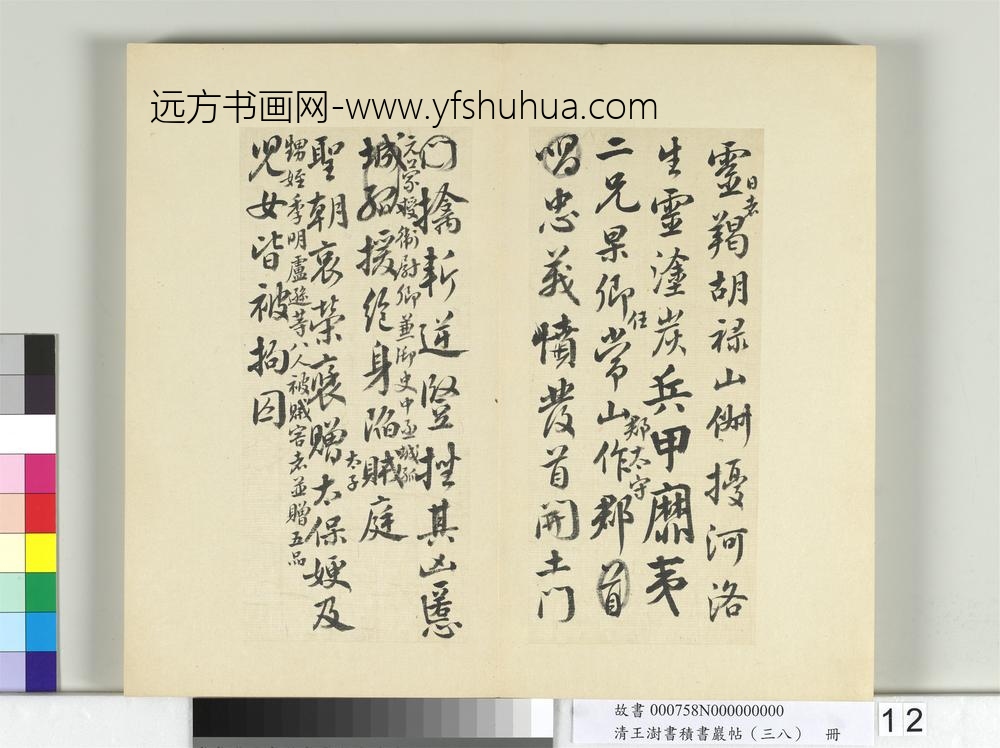 远方书画网-www.yfshuhua.com
靈日者羯胡禄山俶擾河洛
生靈塗炭兵甲靡夷
二兄杲卿任常山郡太守作郡首
唱忠義憤發首開土门
门擒斬逆豎挫其凶慝
元口蒙授衛尉卿兼御史中丞城孤
城孤援絕身陷賊庭
太子
聖朝哀榮褒贈太保嫂及
甥姪季明盧逖等八人被賊害者並贈五品
児女皆被拘囚
故書 000758N000000000
清王澍書積書巖帖（三八） 冊
12